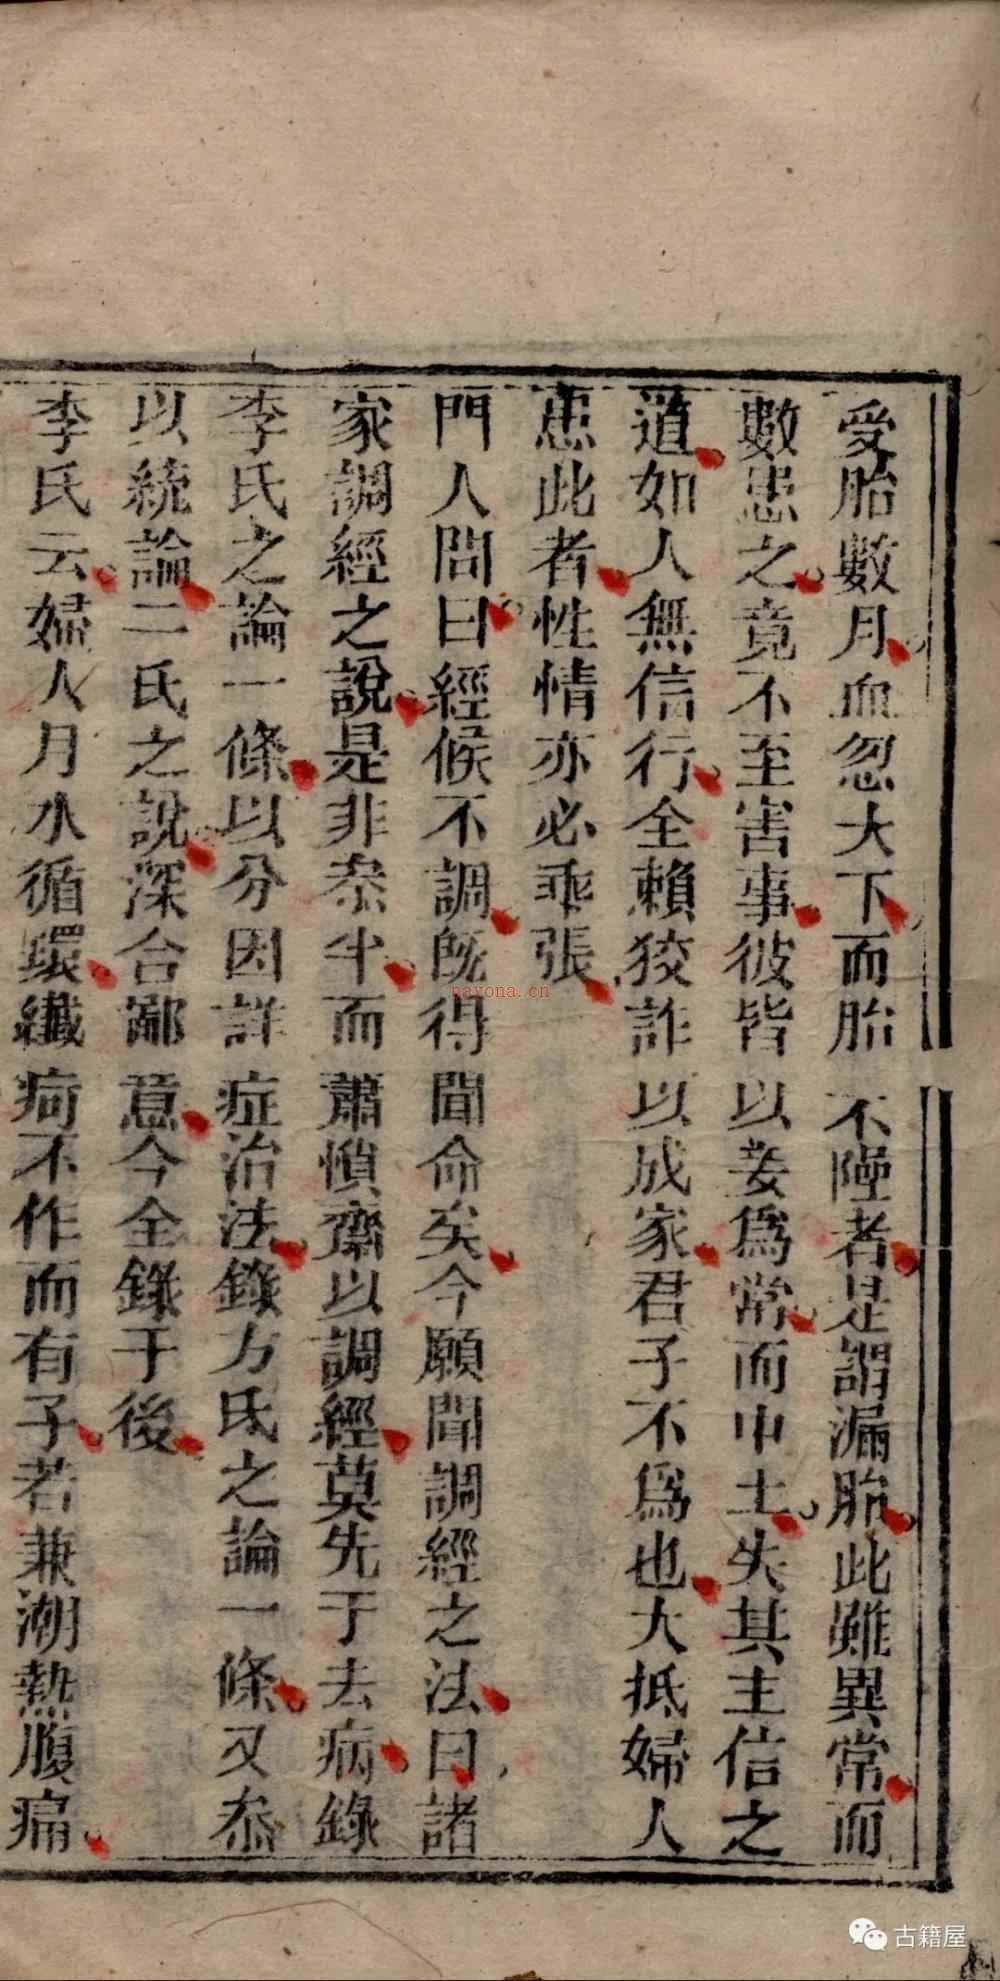 受胎數月血忽大下而胎不墮者是謂漏胎此雖異常而
數患之竟不至害事彼皆以妄爲常而中土失其主信之
道如人無信行全賴狡詐以成家君子不爲也大抵婦人
患此者性情亦必乖張
門人問曰經候不調既得聞命矣今願聞調經之法曰諸
家調經之說是非叅半而蕭慎齋以調經莫先于去病錄
李氏之論一條以分因詳症治法錄方氏之論一條又叅
以統論二氏之說深合鄙意今全錄于後
李氏云婦人月水循環纖疴不作而有子若兼潮熱腹痛
nayona.cn
古籍屋